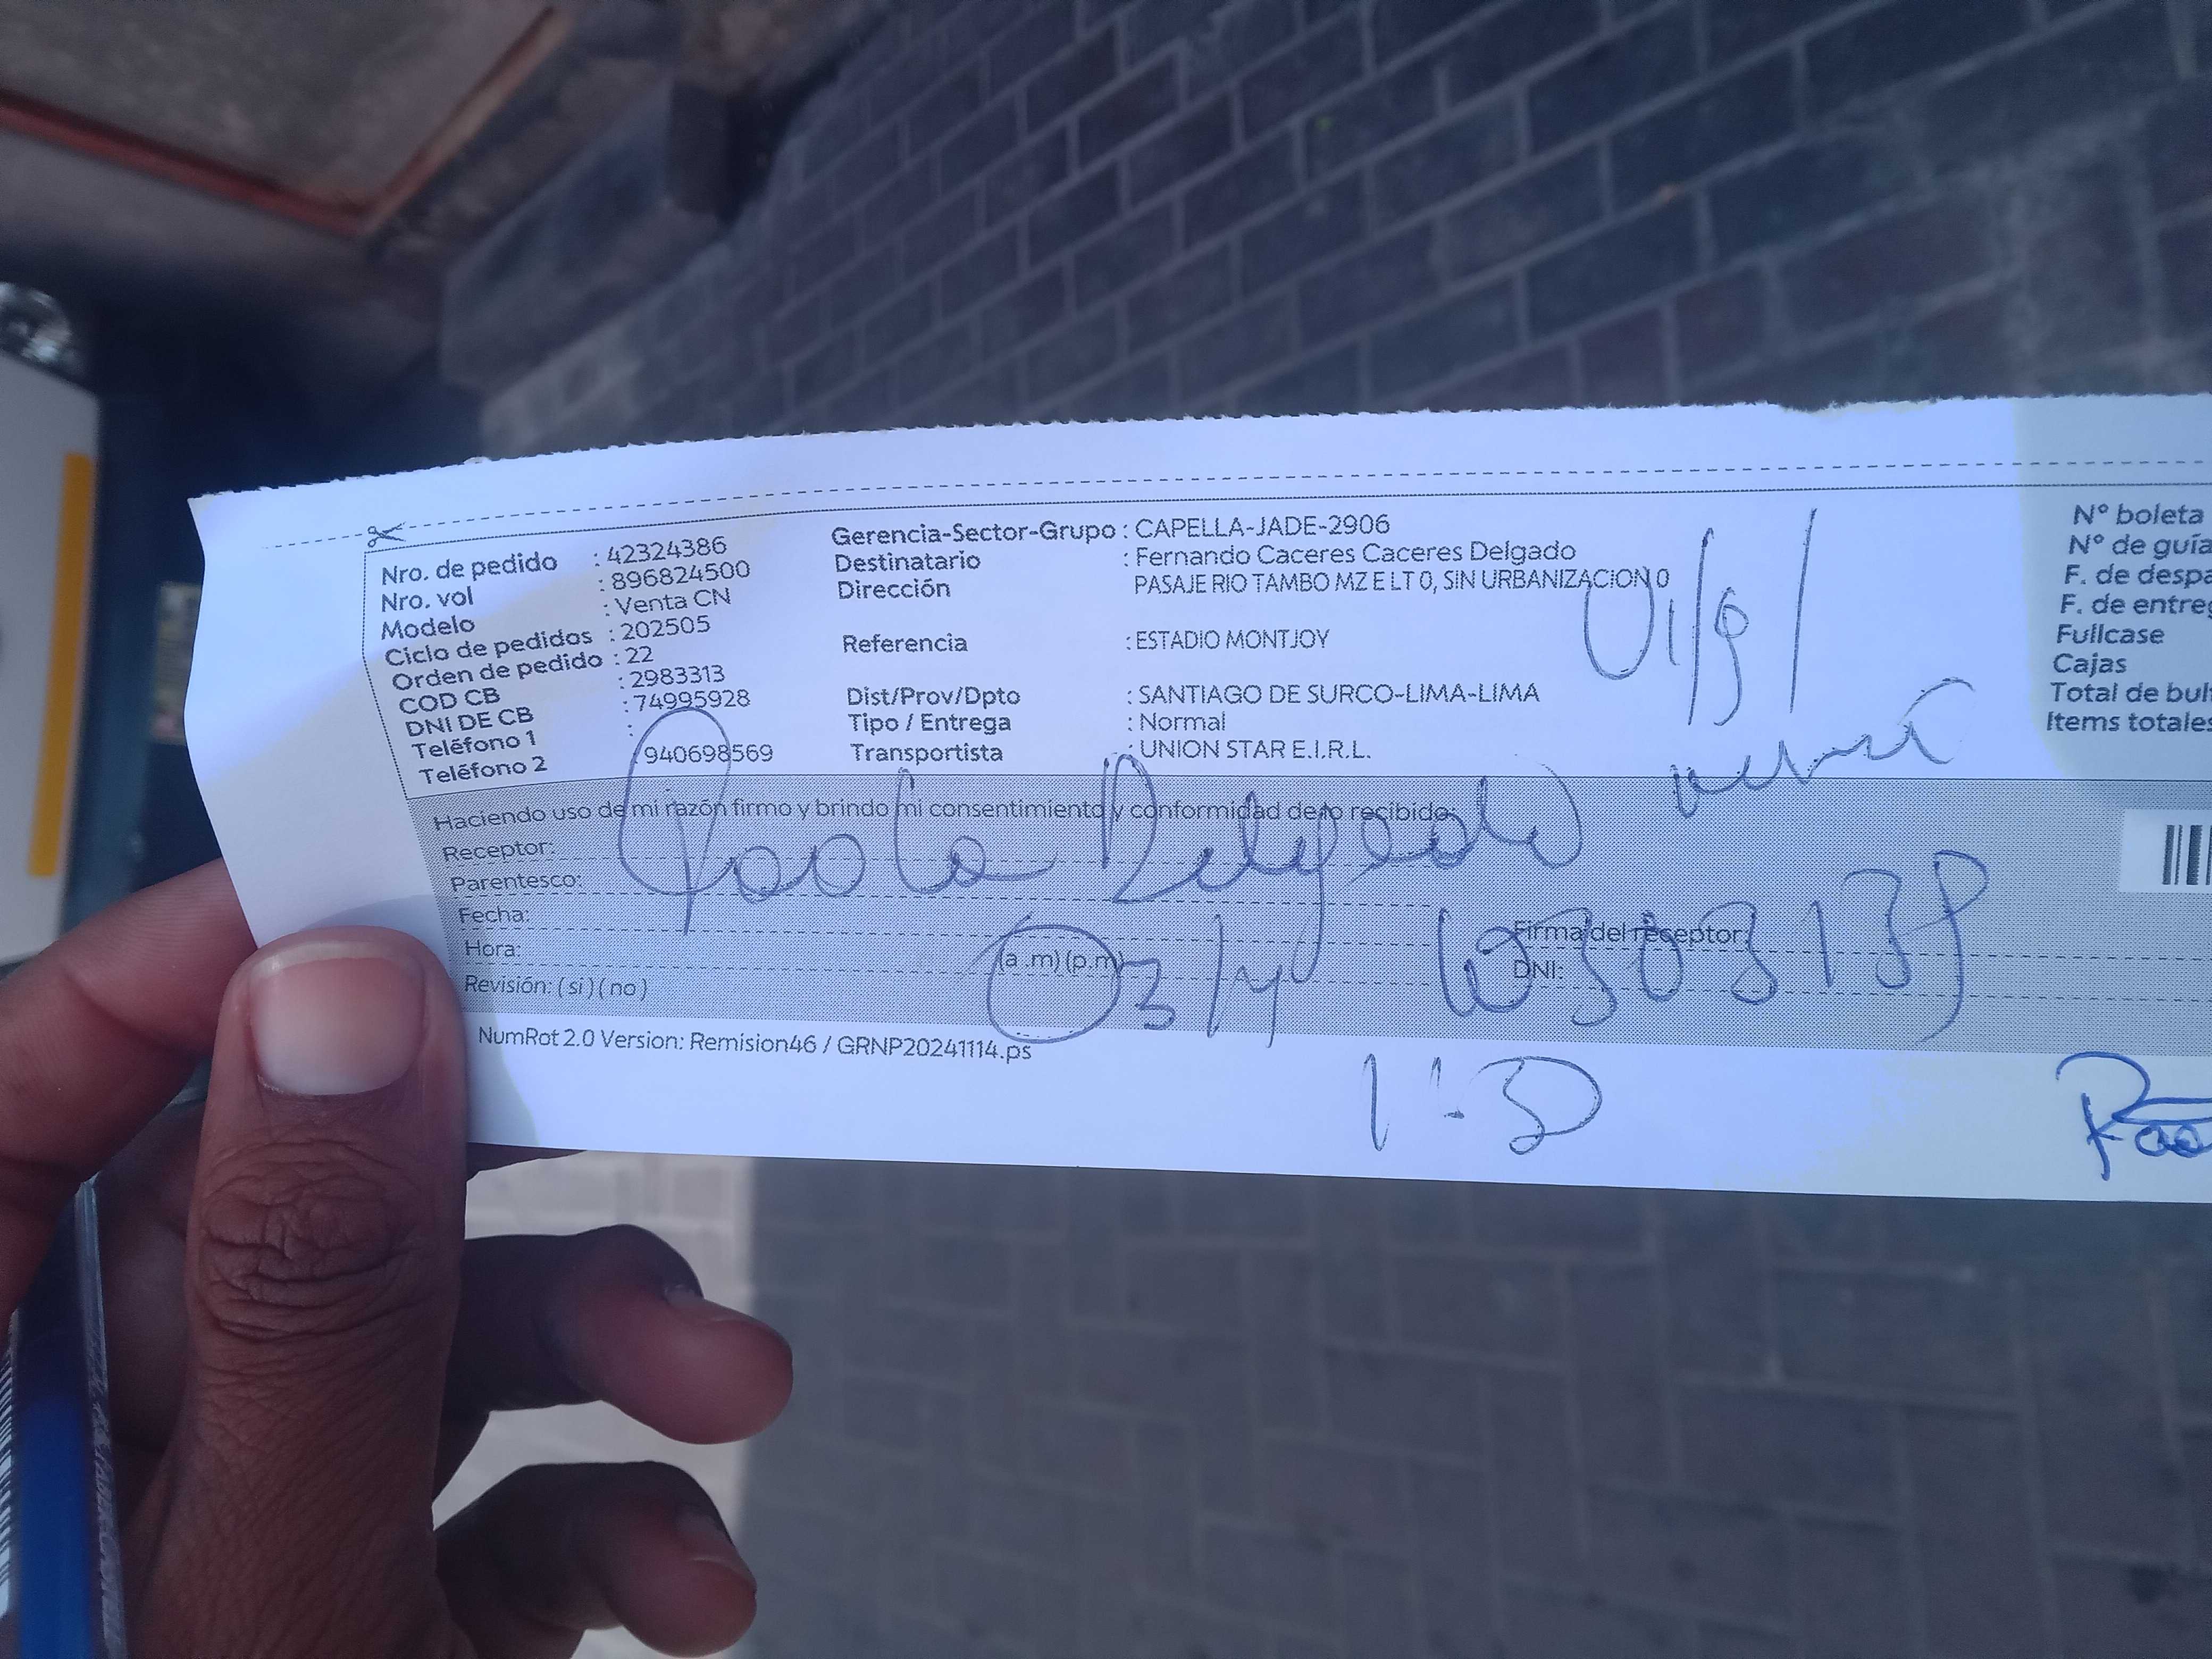 Nro. de pedido : 42324386
Nro. vol : 896824500
Modelo : Venta CN
Ciclo de pedidos : 202505
Orden de pedido : 22
COD CB : 2983313
DNI DE CB : 74995928
Teléfono 1 :
Teléfono 2 940698569
Gerencia-Sector-Grupo : CAPELLA-JADE-2906
Destinatario : Fernando Caceres Caceres Delgado
Dirección PASAJE RIO TAMBO MZ E LT 0, SIN URBANIZACION 0
Referencia : ESTADIO MONTJOY
Dist/Prov/Dpto : SANTIAGO DE SURCO-LIMA-LIMA
Tipo / Entrega : Normal
Transportista : UNION STAR E.I.R.L.
N° boleta
N° de guía
F. de despa
F. de entreg
Fullcase
Cajas
Total de bul
Items totales
Haciendo uso de mi razón firmo y brindo mi consentimiento y conformidad de lo recibido:
Receptor:
Parentesco:
Paola Delgado
Fecha:
Hora: (a .m) (p.m)
03/4
Revisión: ( si ) ( no )
Firma del receptor:
DNI:
NumRot 2.0 Version: Remision46 / GRNP20241114.ps